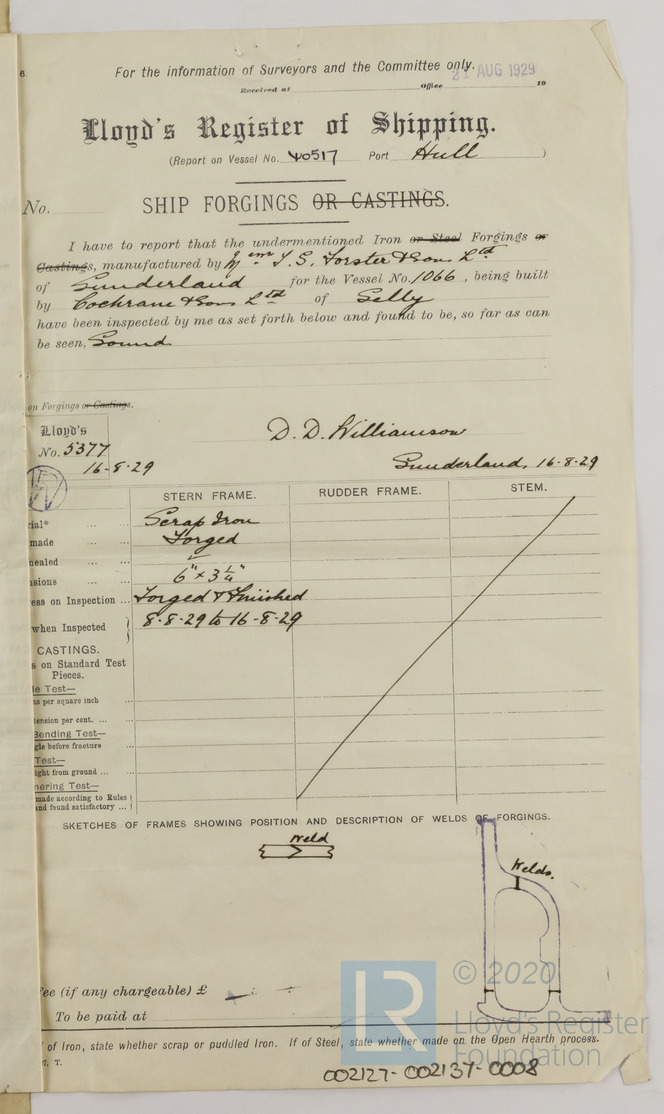 6.
For the information of Surveyors and the Committee only.
21 AUG 1929
Received at Office 19
Lloyd's Register of Shipping.
(Report on Vessel No. 40517 Port Hull )
No.
SHIP FORGINGS OR CASTINGS.
I have to report that the undermentioned Iron or Steel Forgings or
Castings, manufactured by T. S. Forster & Son Ltd
of Sunderland for the Vessel No. 1066, being built
by Cochrane & Sons Ltd of Selby
have been inspected by me as set forth below and found to be, so far as can
be seen, Sound
on Forgings or Castings.
Lloyd's
No. 5377
16-8-29
D. D. Williamson
Sunderland, 16-8-29
STERN FRAME. RUDDER FRAME. STEM.
rial* ... ... Scrap Iron
made ... ... Forged
nealed ... ...
sions ... ... 6" × 3¼"
ess on Inspection ... Forged & Finished
when Inspected 8-8-29 to 16-8-29
CASTINGS.
s on Standard Test
Pieces.
le Test—
ns per square inch ...
tension per cent. ... ...
Bending Test—
gle before fracture ...
Test—
ight from ground ... ...
mering Test—
made according to Rules
and found satisfactory ...
SKETCHES OF FRAMES SHOWING POSITION AND DESCRIPTION OF WELDS OF FORGINGS.
Weld
Welds.
fee (if any chargeable) £
To be paid at
of Iron, state whether scrap or puddled Iron. If of Steel, state whether made on the Open Hearth process.
T.
LR
© 2020
Lloyd's Register
Foundation
002127-002137-0008